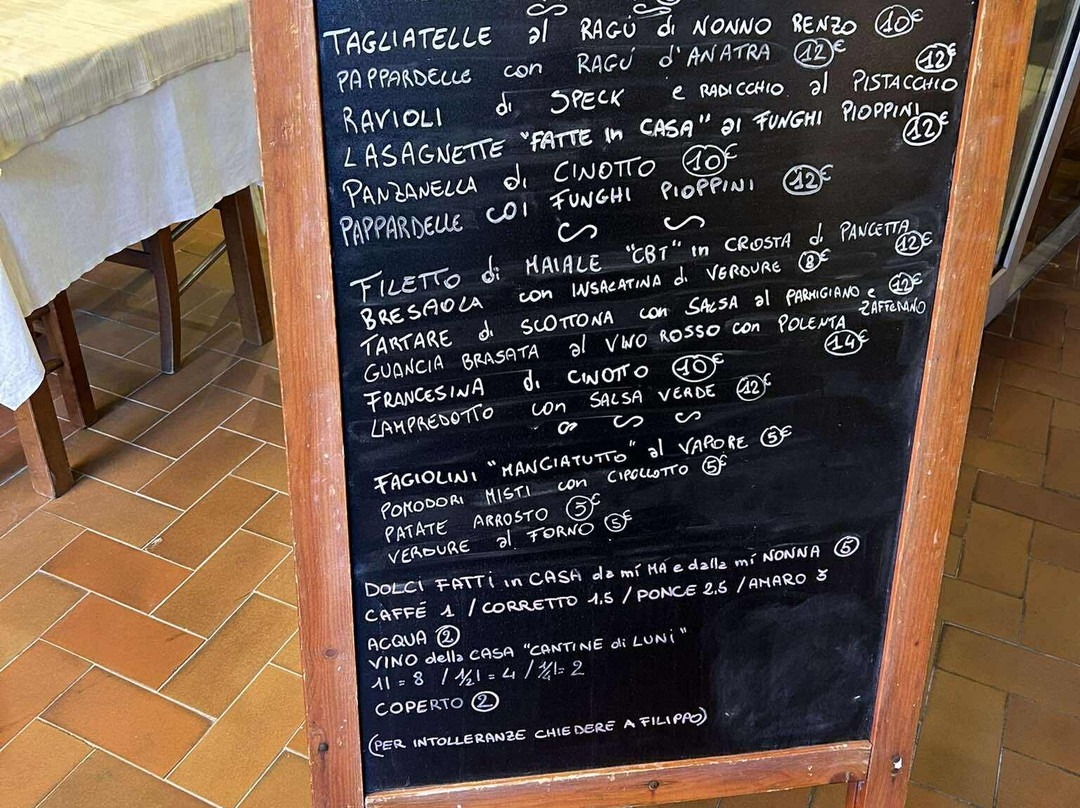 TAGLIATELLE al RAGÚ di NONNO RENZO 10€
PAPPARDELLE con RAGÚ d'ANATRA 12€
RAVIOLI di SPECK e RADICCHIO al PISTACCHIO 12€
LASAGNETTE "FATTE in CASA" ai FUNGHI PIOPPINI 12€
PANZANELLA di CINOTTO 10€
PAPPARDELLE COI FUNGHI PIOPPINI 12€
FILETTO di MAIALE "CBT" in CROSTA di PANCETTA 12€
BRESAOLA con INSALATINA di VERDURE 8€
TARTARE di SCOTTONA con SALSA al PARMIGIANO e ZAFFERANO 12€
GUANCIA BRASATA al VINO ROSSO con POLENTA 14€
FRANCESINA di CINOTTO 10€
LAMPREDOTTO con SALSA VERDE 12€
FAGIOLINI "MANGIATUTTO" al VAPORE 5€
POMODORI MISTI con CIPOLLOTTO 5€
PATATE ARROSTO 5€
VERDURE al FORNO 5€
DOLCI FATTI in CASA da mí MÁ e dalla mí NONNA 5
CAFFÉ 1 / CORRETTO 1,5 / PONCE 2,5 / AMARO 3
ACQUA 2
VINO della CASA "CANTINE di LUNI"
1l = 8 / 1/2l = 4 / 1/4l = 2
COPERTO 2
(PER INTOLLERANZE CHIEDERE A FILIPPO)